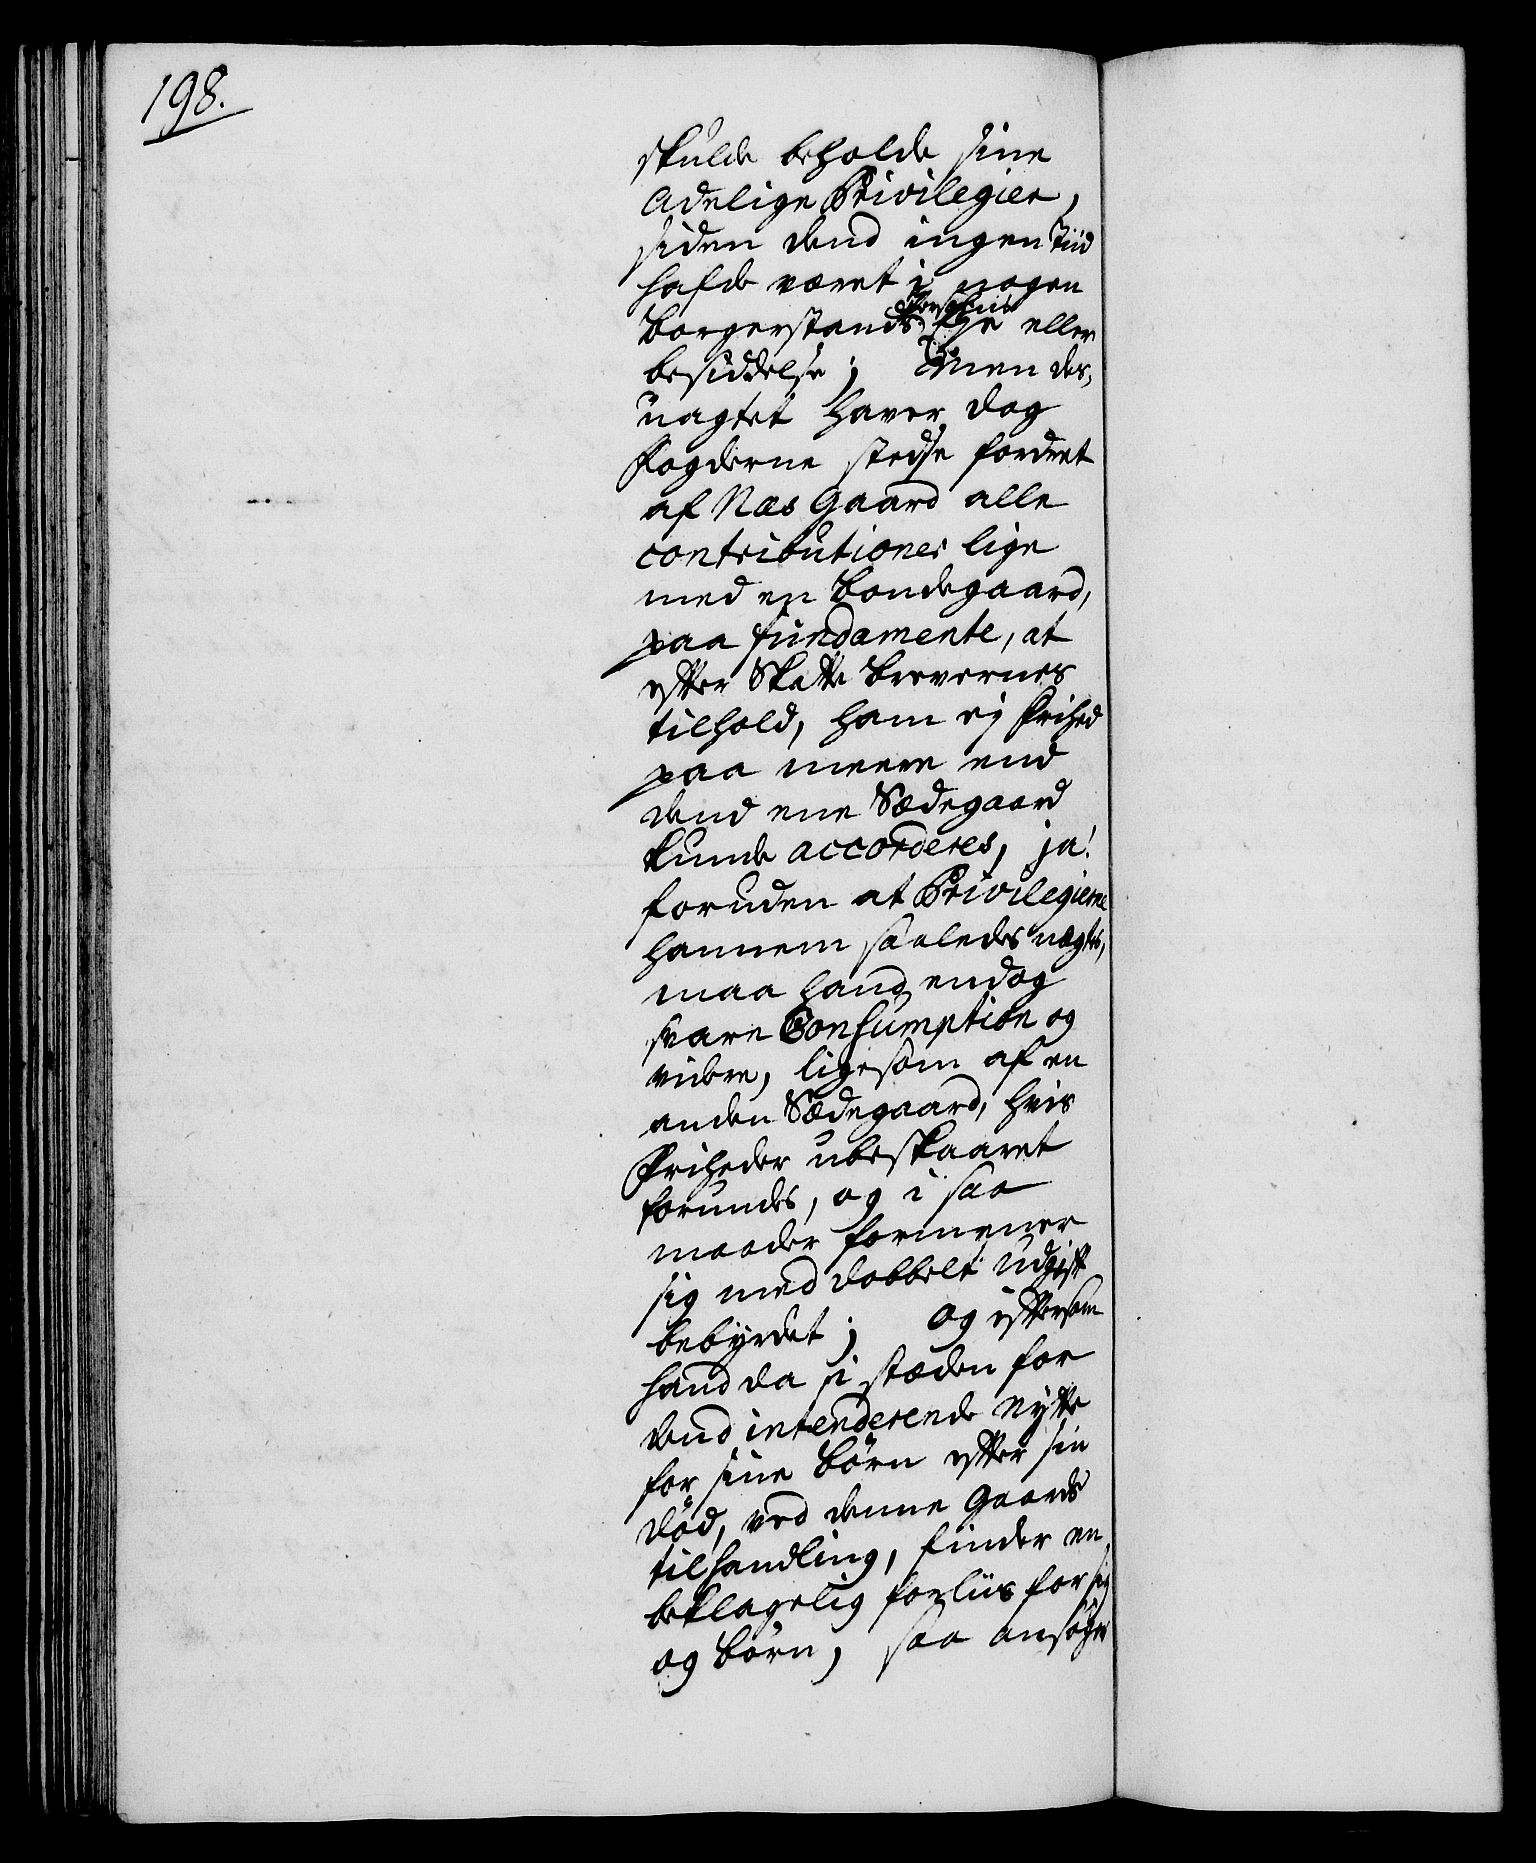 198.
skulde beholde sine
Adelige Privilegier,
siden dend ingen Tiid
hafde været i nogen
Persohns
borgerstands Eje eller
besiddelse; Men des,
uagtet haver dog
Fogderne stedse fordret
af Næs Gaard alle
contributioner lige
med en bondegaard,
paa fundamente, at
efter Skatte brevernes
tilhold, ham ej Frihed
paa meere end
dend ene Sædegaard
kunde accorderes, ja!
foruden at Privilegierne
hannem saaledes nægtes,
maa hand endog
svare Consumption og
videre, ligesom af en
anden Sædegaard, hvis
Friheder ubeskaaret
forundes, og i saa
maader formener
sig med dobbelt Udgift
bebyrdet; og eftersom
hand da i stæden for
dend intenderende Nytte
for sine børn efter sin
död, ved denne Gaards
tilhandling, finder en
beklagelig forliis for sig
og börn, saa ansöger